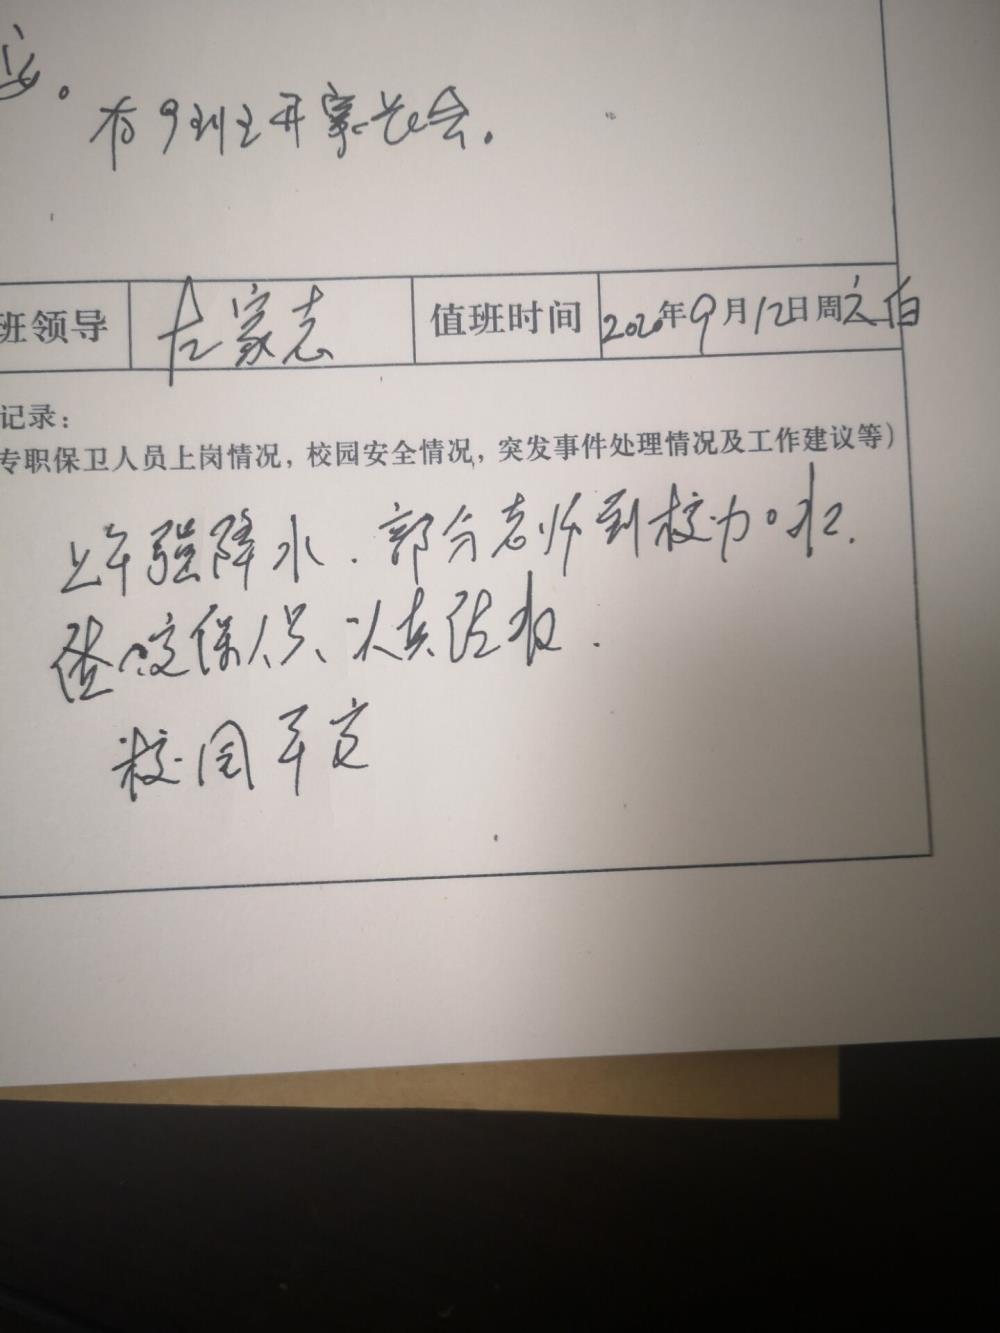 。
有9班主开家长会。
班领导 左家志 值班时间 2020年9月12日周六白
记录：
专职保卫人员上岗情况，校园安全情况，突发事件处理情况及工作建议等）
上午强降水．部分老师到校加水．
值校保人员认真
校园平安